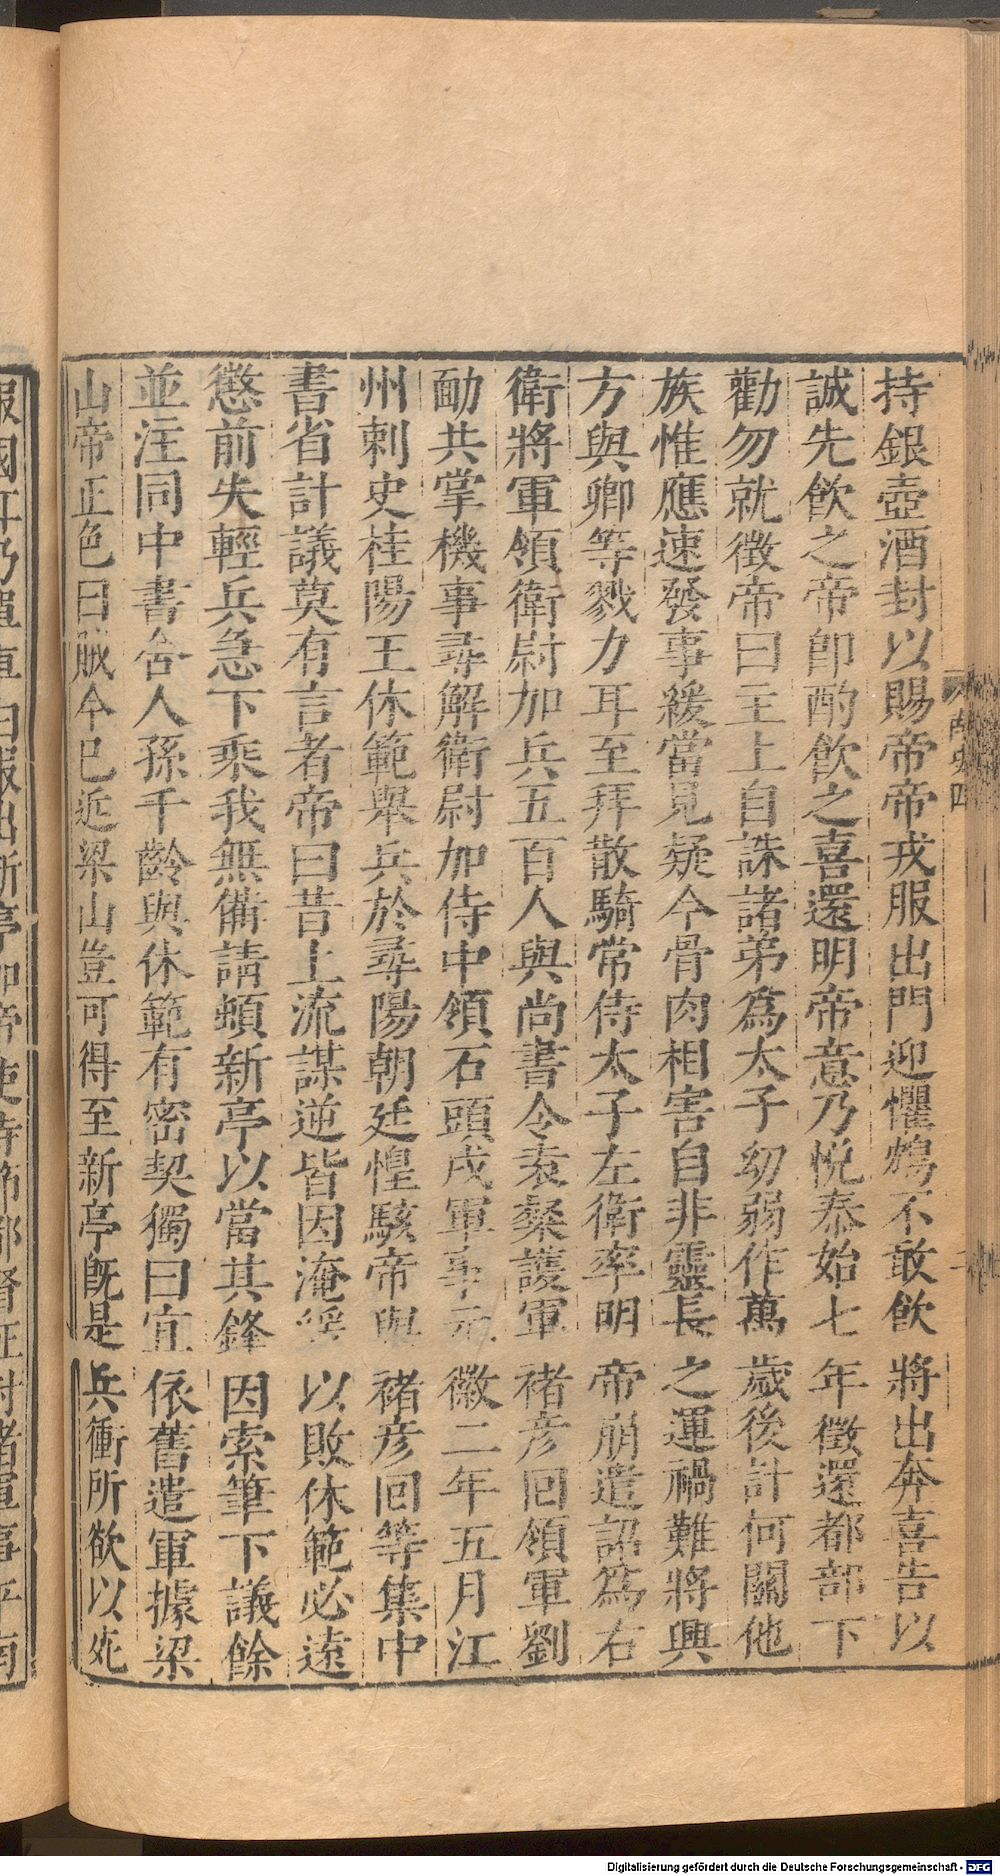 持銀壺酒封以賜帝帝戎服出門迎懼鴆不敢飲將出奔喜告以
誠先飲之帝卽酌飲之喜還明帝意乃悅泰始七年徵還都部下
勸勿就徵帝曰主上自誅諸弟爲太子幼弱作萬歲後計何關他
族惟應速發事緩當見疑今骨肉相害自非靈長之運禍難將興
方與卿等戮力耳至拜散騎常侍太子左衛率明帝崩遺詔爲右
衛將軍領衛尉加兵五百人與尚書令袁粲護軍褚彥回領軍劉
勔共掌機事尋解衛尉加侍中領石頭戍軍事元徽二年五月江
州刺史桂陽王休範舉兵於尋陽朝廷惶駭帝與褚彥回等集中
書省計議莫有言者帝曰昔上流謀逆皆因淹緩以敗休範必遠
懲前失輕兵急下乘我無備請頓新亭以當其鋒因索筆下議餘
並注同中書舍人孫千齡與休範有密契獨曰宜依舊遣軍據梁
山帝正色曰賊今已近梁山豈可得至新亭旣是兵衝所欲以死
報國耳乃單車白服出新亭加帝使持節都督征討諸軍事平南
南史四
Digitalisierung gefördert durch die Deutsche Forschungsgemeinschaft - DFG